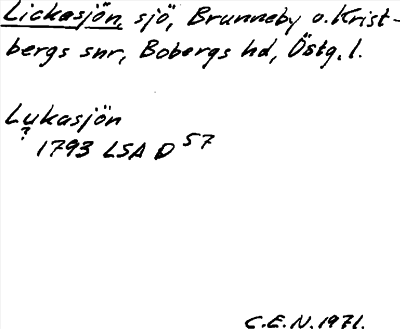 Lickasjön, sjö, Brunneby o. Krist-
bergs snr, Bobergs hd, Östg. l.
Lukasjön
? 1793 LSA D 57
C.E.N. 1971.